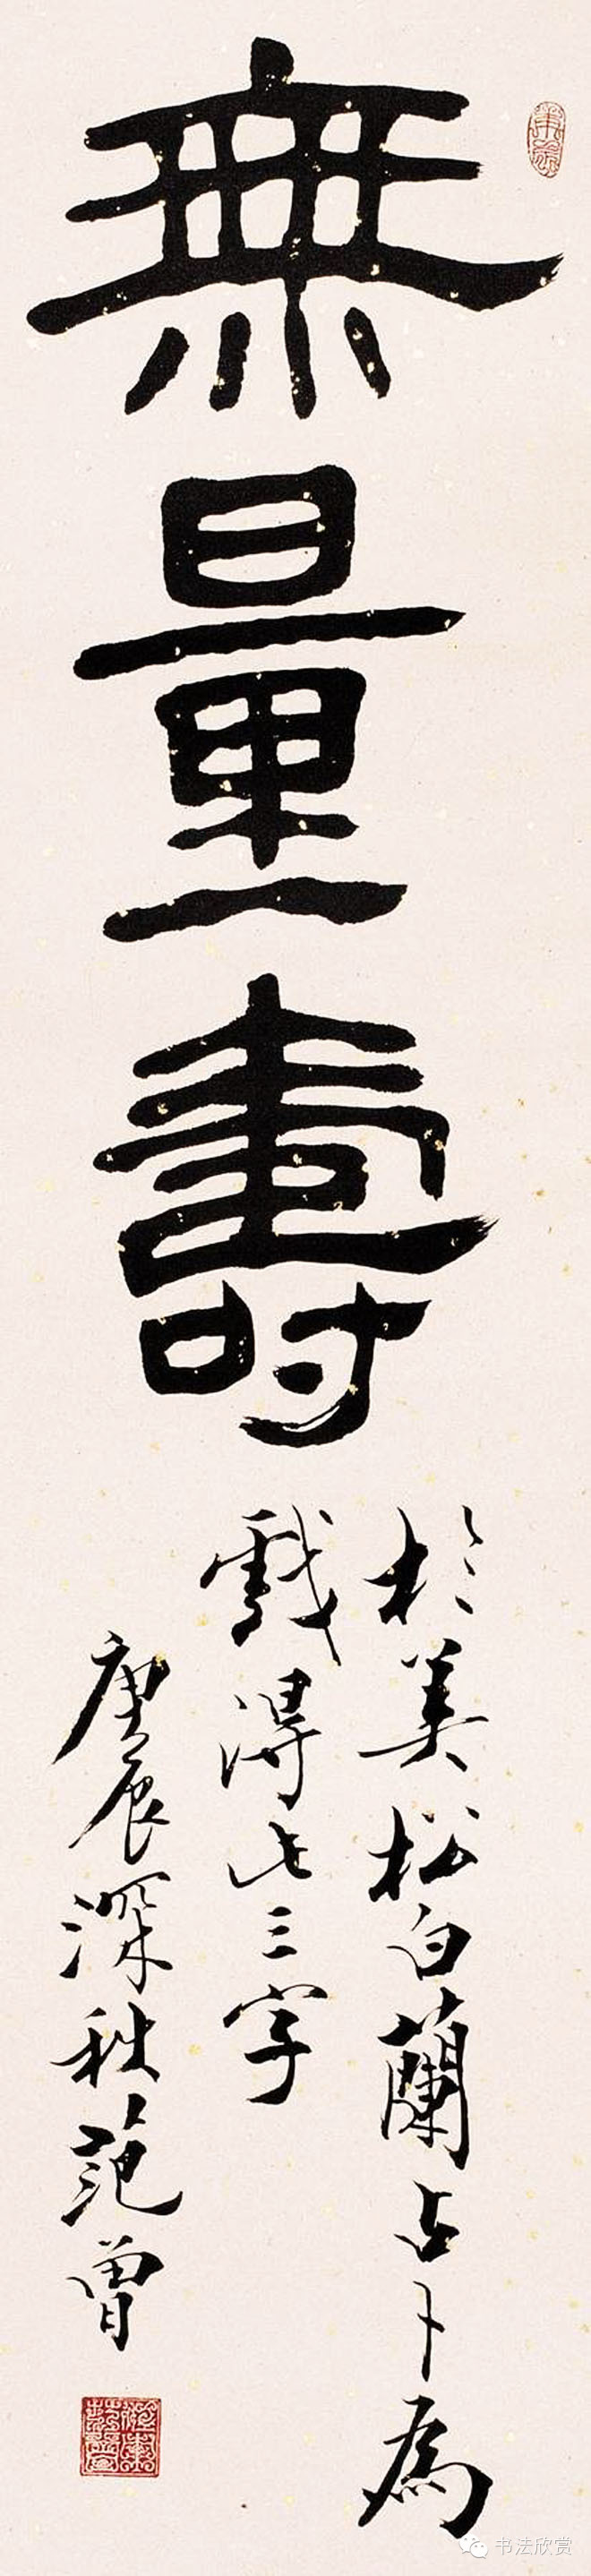 無量壽
於美松白蘭占卜為
戲得此三字
庚辰深秋范曾
书法欣赏